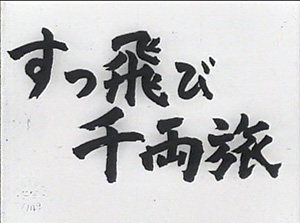 すっ飛び
千両旅